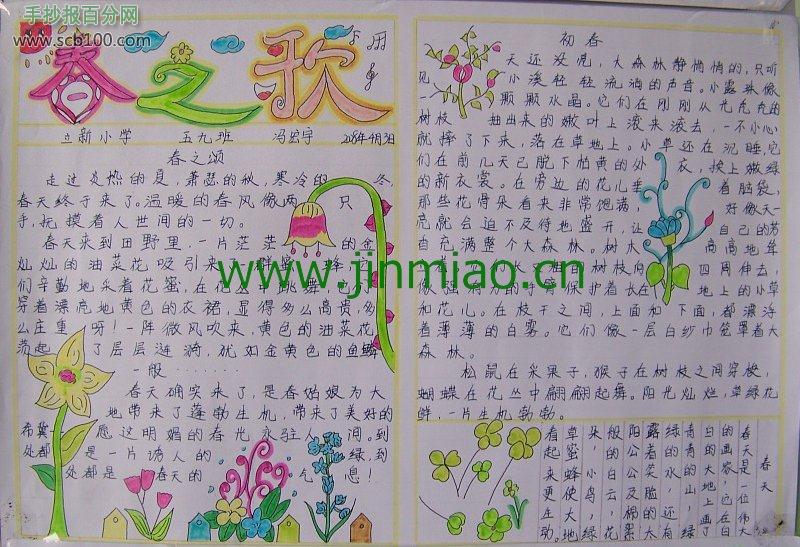 手抄报百分网
www.scb100.com
春之歌
立新小学 五九班 冯宏宇 2008年4月3日
春之颂
走过炎热的夏,萧瑟的秋,寒冷的冬,
春天终于来了。温暖的春风像两只
手,抚摸着人世间的一切。
春天来到田野里,一片茫茫的金
灿灿的油菜花吸引来了群蜜蜂,
们辛勤地采着花蜜,在花丛中跳舞
穿着漂亮地黄色的衣裙,显得多么高贵,多
么庄重呀!一阵微风吹来,黄色的油菜花
荡起了层层涟漪,犹如金黄色的鱼鳞
一般……
春天确实来了,是春姑娘为大
地带来了蓬勃生机,带来了美好的
希冀 愿这明媚的春光永驻人间。到
处都是一片诱人的绿,到
处都是春天的气息!
初春
天还没亮,大森林静悄悄的,只听
见小溪轻轻流淌的声音。小露珠像
颗颗水晶。它们在刚刚从光秃秃的
树枝抽出来的嫩叶上滚来滚去,一不小心
就摔了下来,落在草地上。小草还在沉睡,它
们在前几天已脱下枯黄的外衣,换上嫩绿
的新衣裳。在旁边的花儿垂着脑袋,
那些花得朵看来非常饱满,好像天一
亮就会迫不及待地盛开,让自己的芳
香充满整个大森林。树木高高地耸
树枝向四周伸去,
像强 有力的手臂保护着长在地上的小草
和花儿。在枝干之间,上面和下面,都漂浮
着薄薄的白雾。它们像一层白纱巾笼罩着大
森林。
松鼠在采果子,猴子在树枝之间穿梭,
蝴蝶在花丛中翩翩起舞。阳光灿烂,草绿花
鲜,一片生机勃勃。
春天
www.jinmiao.cn